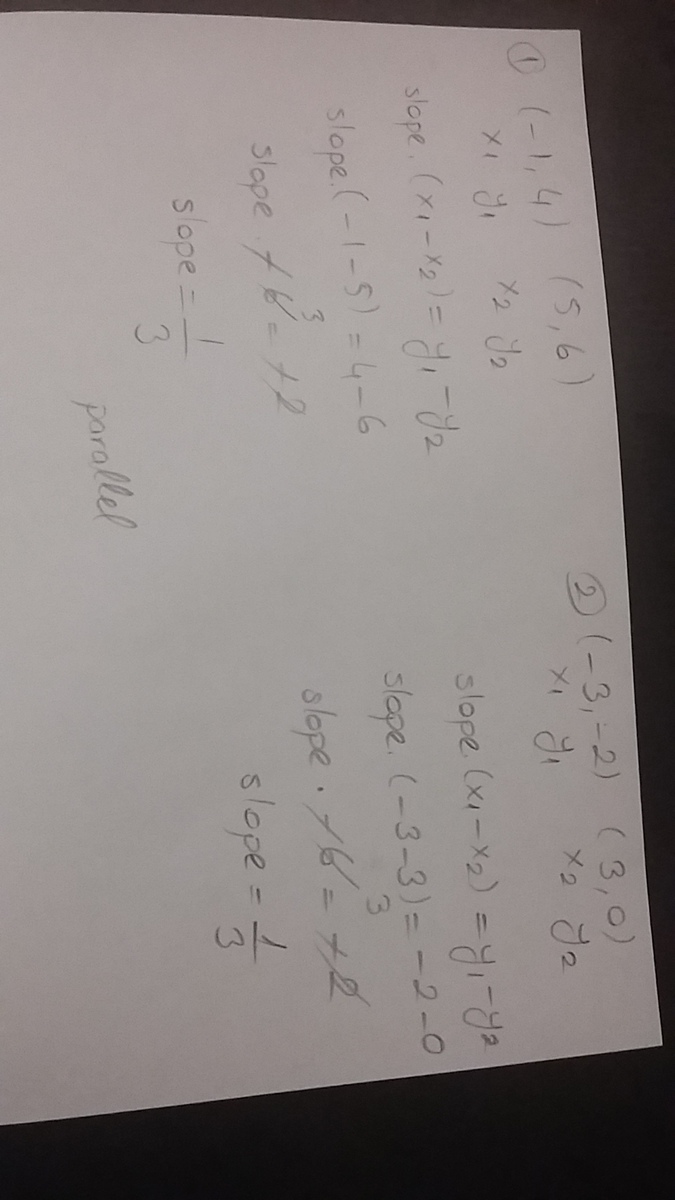 ① (-1, 4) (5, 6)
x₁ y₁ x₂ y₂
slope. (x₁-x₂) = y₁-y₂
slope. (-1-5) = 4-6
slope. -6 3 = -2
slope = 1/3
parallel
② (-3, -2) (3, 0)
x₁ y₁ x₂ y₂
slope. (x₁-x₂) = y₁-y₂
slope. (-3-3) = -2-0
slope. -6 3 = -2
slope = 1/3